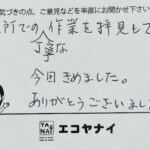 気づきの点、ご意見などを率直にお聞かせ下さい
所での作業を拝見して
丁寧な
今回きめました。
ありがとうございまし
YANAI
エコヤナイ